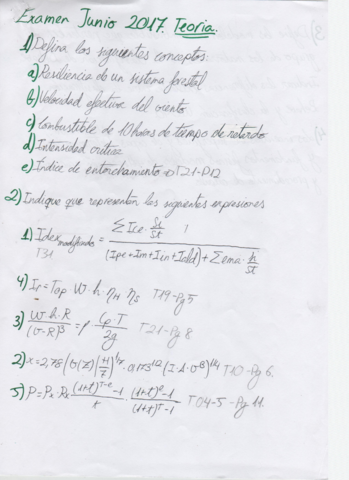 Examen Junio 2017. Teoría.
1) Defina los siguientes conceptos:
a) Resiliencia de un sistema forestal
b) Velocidad efectiva del viento
c) Combustible de 10 horas de tiempo de retardo
d) Intensidad crítica
e) Índice de entorchamiento → T21-D12
2) Indique que representan las siguientes expresiones
1) Idex modificado = Σ Ice · Si/St / (Ipe + Im + Iin + Iald) + Σ ema · h/st
T31
4) Ir = Tap W · h · ηH ηS T19-Pg5
3) W·h·R / (U-R)³ = ρ φ·T / 2g T21-Pg 8
T10-Pg 6.
T04-5-Pg 11.